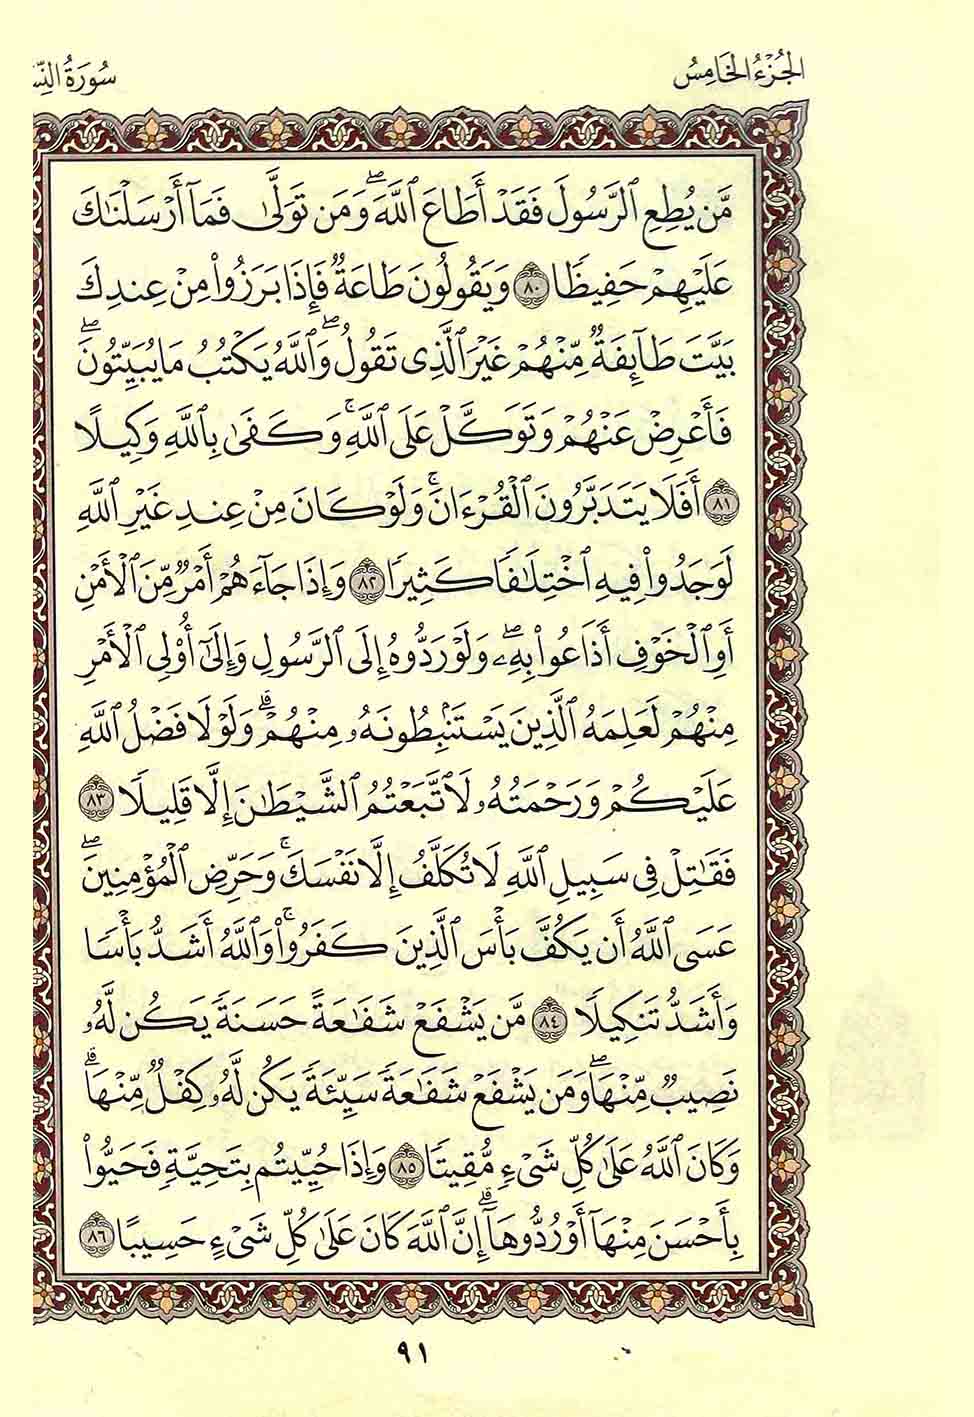 الجُزْءُ الخَامِسُ
سُورَةُ النِّسَ
مَّن يُطِعِ ٱلرَّسُولَ فَقَدْ أَطَاعَ ٱللَّهَۖ وَمَن تَوَلَّىٰ فَمَآ أَرْسَلْنَٰكَ
عَلَيْهِمْ حَفِيظًا ٨٠ وَيَقُولُونَ طَاعَةٌ فَإِذَا بَرَزُوا۟ مِنْ عِندِكَ
بَيَّتَ طَآئِفَةٌ مِّنْهُمْ غَيْرَ ٱلَّذِى تَقُولُۖ وَٱللَّهُ يَكْتُبُ مَا يُبَيِّتُونَۖ
فَأَعْرِضْ عَنْهُمْ وَتَوَكَّلْ عَلَى ٱللَّهِۚ وَكَفَىٰ بِٱللَّهِ وَكِيلًا
٨١ أَفَلَا يَتَدَبَّرُونَ ٱلْقُرْءَانَۚ وَلَوْ كَانَ مِنْ عِندِ غَيْرِ ٱللَّهِ
لَوَجَدُوا۟ فِيهِ ٱخْتِلَٰفًا كَثِيرًا ٨٢ وَإِذَا جَآءَهُمْ أَمْرٌ مِّنَ ٱلْأَمْنِ
أَوِ ٱلْخَوْفِ أَذَاعُوا۟ بِهِۦۖ وَلَوْ رَدُّوهُ إِلَى ٱلرَّسُولِ وَإِلَىٰٓ أُو۟لِى ٱلْأَمْرِ
مِنْهُمْ لَعَلِمَهُ ٱلَّذِينَ يَسْتَنۢبِطُونَهُۥ مِنْهُمْۗ وَلَوْلَا فَضْلُ ٱللَّهِ
عَلَيْكُمْ وَرَحْمَتُهُۥ لَٱتَّبَعْتُمُ ٱلشَّيْطَٰنَ إِلَّا قَلِيلًا ٨٣
فَقَٰتِلْ فِى سَبِيلِ ٱللَّهِ لَا تُكَلَّفُ إِلَّا نَفْسَكَۚ وَحَرِّضِ ٱلْمُؤْمِنِينَۖ
عَسَى ٱللَّهُ أَن يَكُفَّ بَأْسَ ٱلَّذِينَ كَفَرُوا۟ۚ وَٱللَّهُ أَشَدُّ بَأْسًا
وَأَشَدُّ تَنكِيلًا ٨٤ مَّن يَشْفَعْ شَفَٰعَةً حَسَنَةً يَكُن لَّهُۥ
نَصِيبٌ مِّنْهَاۖ وَمَن يَشْفَعْ شَفَٰعَةً سَيِّئَةً يَكُن لَّهُۥ كِفْلٌ مِّنْهَاۗ
وَكَانَ ٱللَّهُ عَلَىٰ كُلِّ شَىْءٍ مُّقِيتًا ٨٥ وَإِذَا حُيِّيتُم بِتَحِيَّةٍ فَحَيُّوا۟
بِأَحْسَنَ مِنْهَآ أَوْ رُدُّوهَآۗ إِنَّ ٱللَّهَ كَانَ عَلَىٰ كُلِّ شَىْءٍ حَسِيبًا ٨٦
٩١